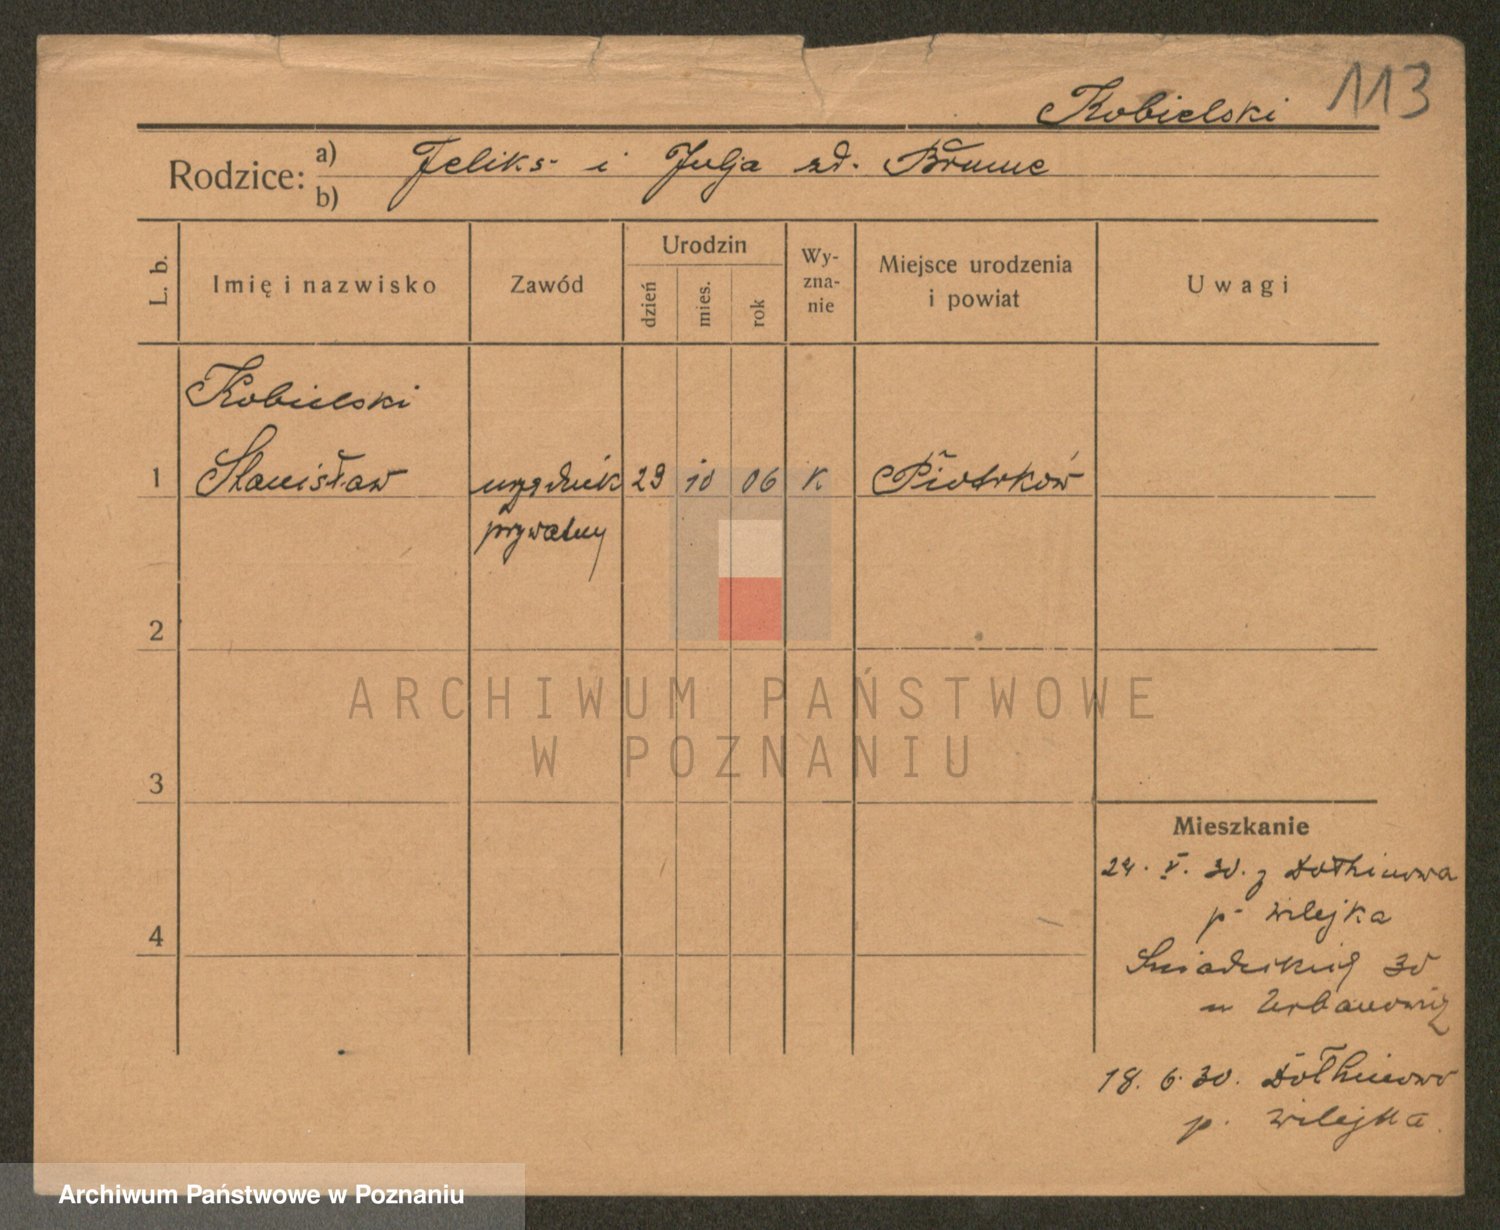 113
Kobielski
Rodzice: a) Feliks i Julja zd.
b)
L. b.
Imię i nazwisko
Zawód
Urodzin
dzień
mies.
rok
Wy-
zna-
nie
Miejsce urodzenia
i powiat
Uwagi
Kobielski
1 Stanisław urzędnik 29 10 06 K Piotrków
prywatny
2
3
4
ARCHIWUM PAŃSTWOWE
W POZNANIU
Mieszkanie
24. V. 30. z Dołhinowa
p. Wilejka
30
u Urbanowicz
18. 6. 30. Dołhinowo
p. Wilejka
Archiwum Państwowe w Poznaniu